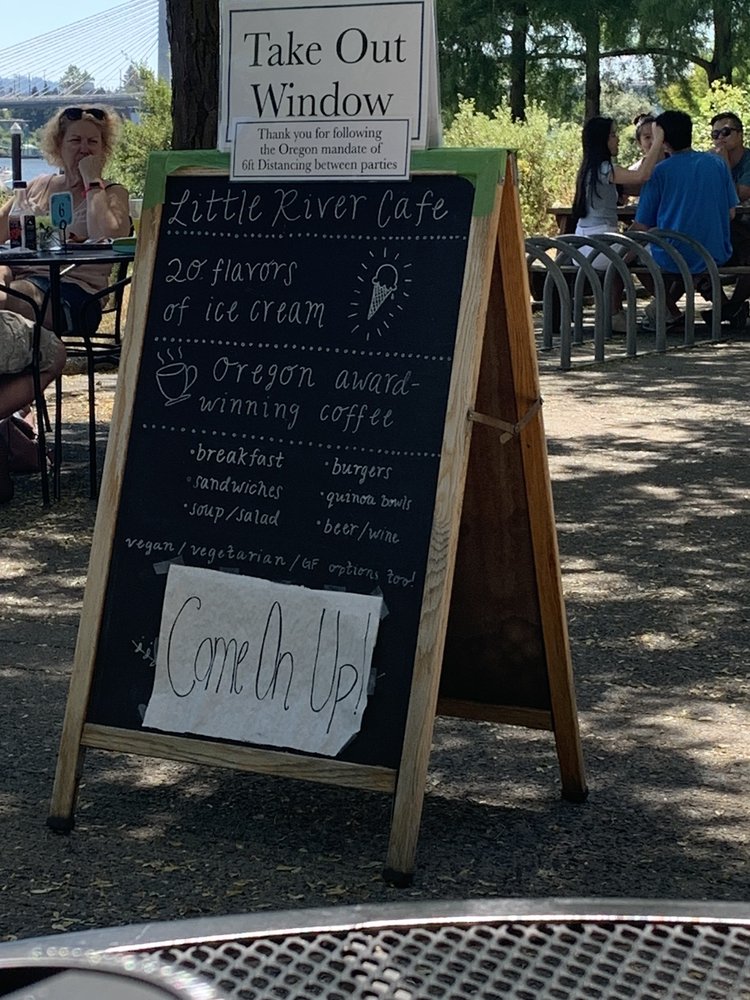 Take Out
Window
Thank you for following
the Oregon mandate of
6ft Distancing between parties
Little River Cafe
20 flavors
of ice cream
Oregon award-
winning coffee
•breakfast
•sandwiches
•soup/salad
•burgers
•quinoa bowls
•beer/wine
vegan/vegetarian/GF options too!
Come On Up!
6